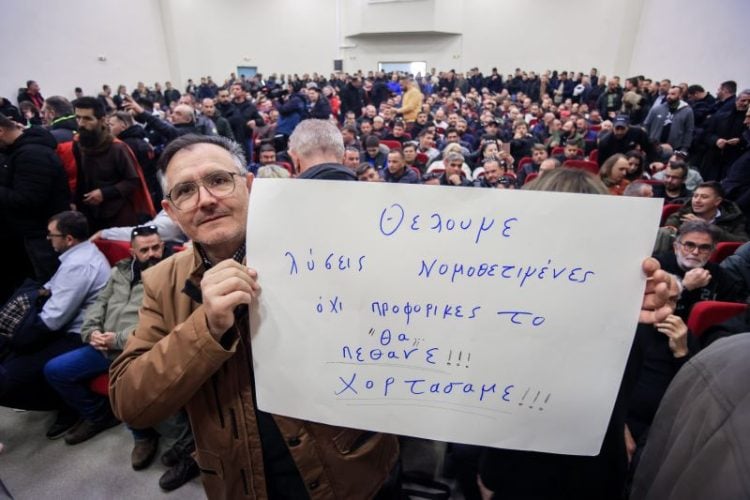 Θελουμε
λύσεις νομοθετιμένες
όχι προφορικες το
"θα"
πεθανε!!!
χορτασαμε!!!